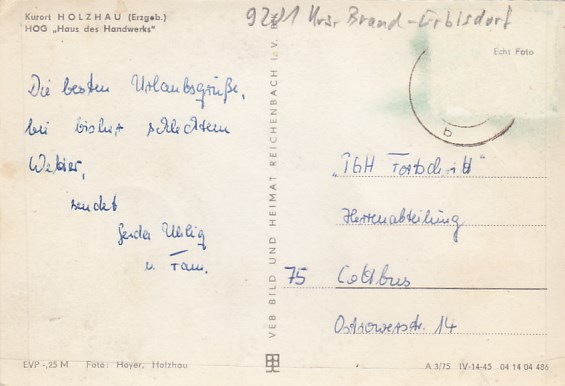 Kurort HOLZHAU (Erzgeb.)
HOG „Haus des Handwerks"
9201 Krsr Brand-Erbisdorf
Echt Foto
Die besten Urlaubsgrüße,
bei bisher schlechtem
Wetter,
sendet
Gerda Uhlig
u. Fam.
VEB BILD UND HEIMAT REICHENBACH I. V.
b
„PGH Fortschritt"
Herrenabteilung
75 Cottbus
Ostrowerstr. 14
EVP -,25 M Foto: Hoyer, Holzhau
A 3/75 IV-14-45 04 14 04 486